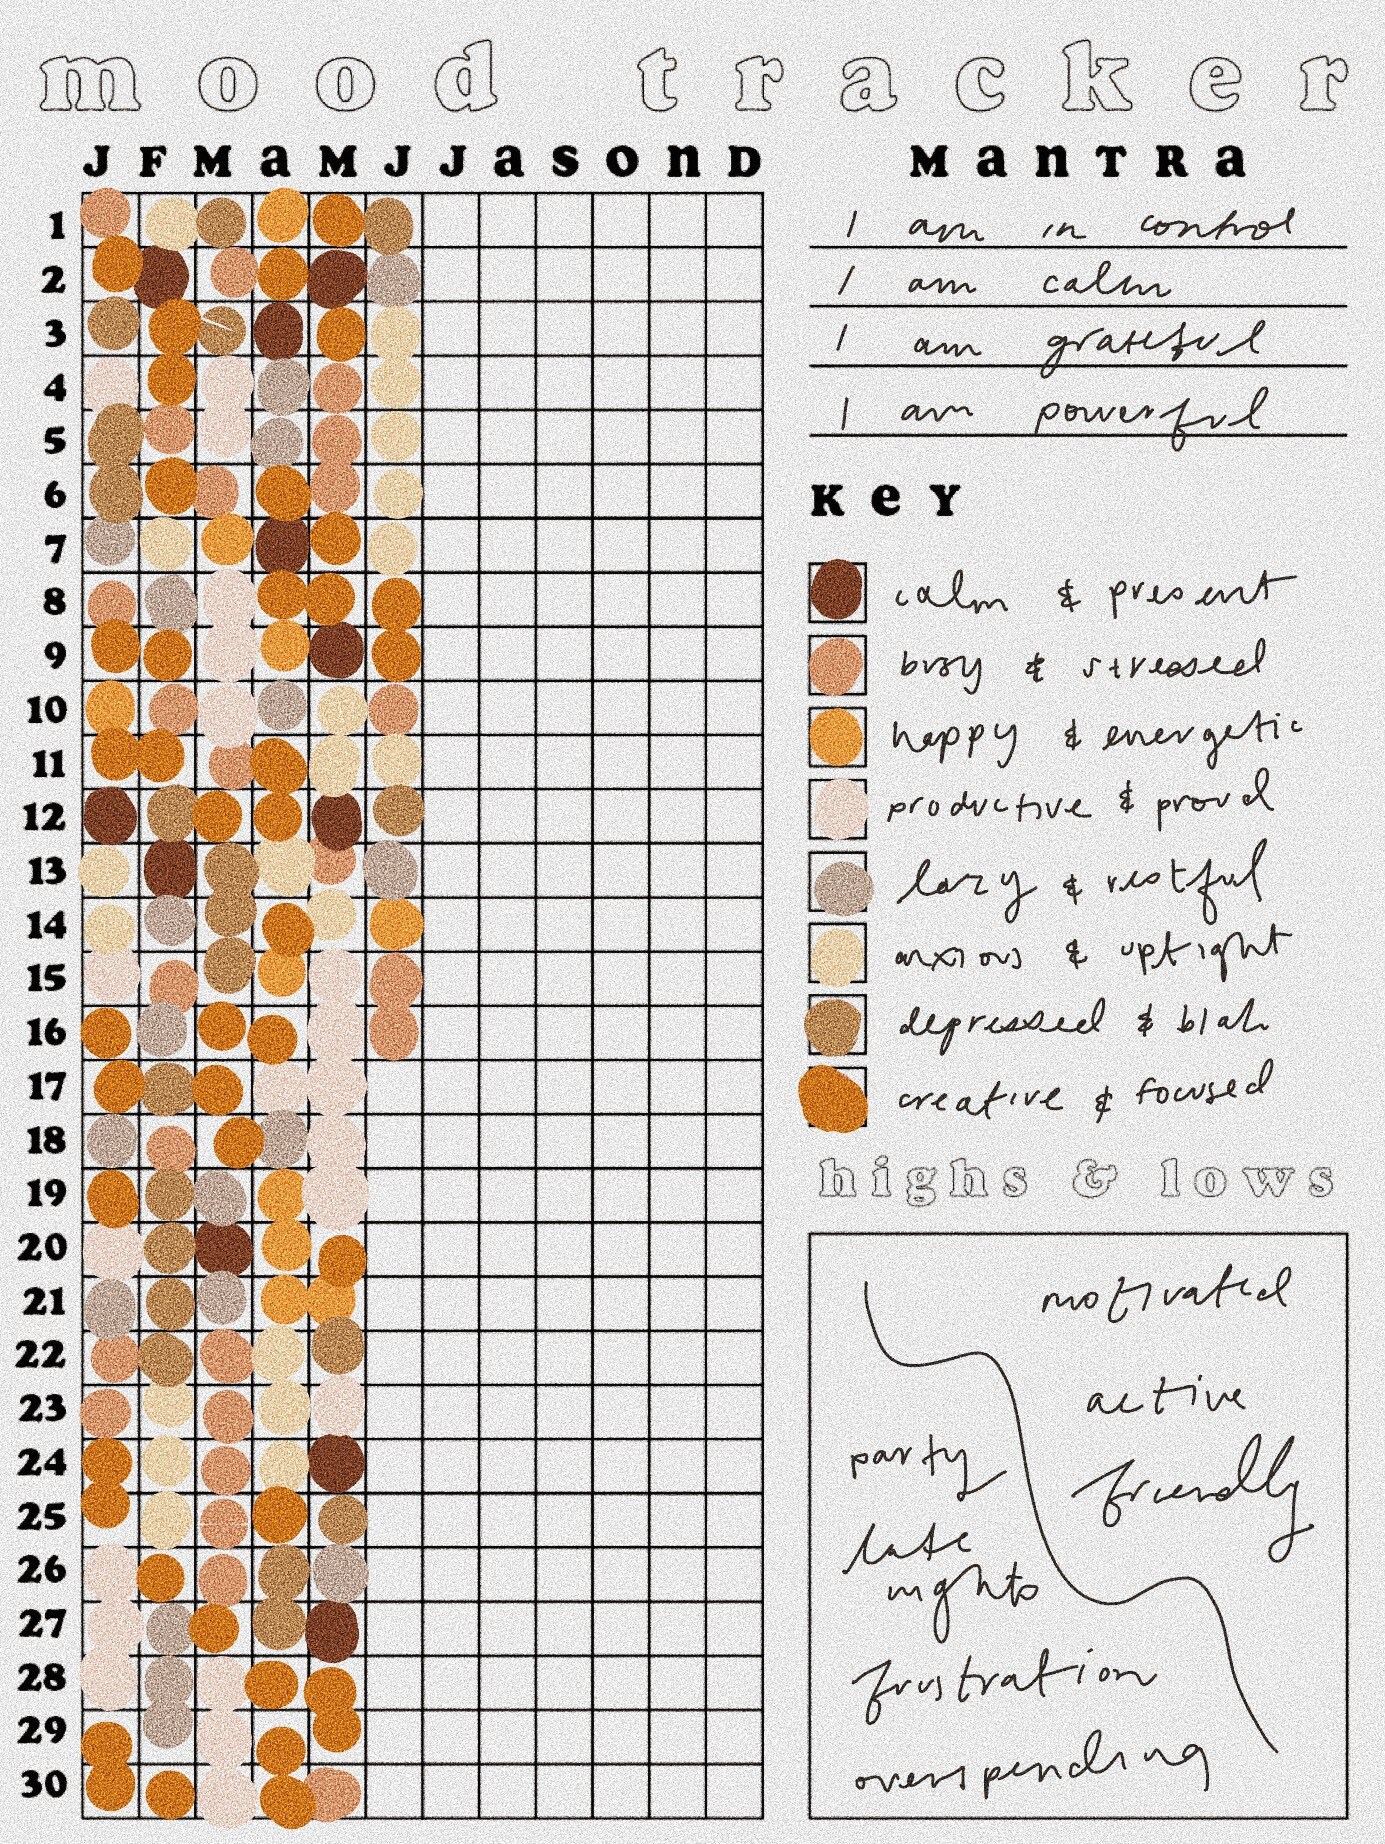 mood tracker
J F M a M J J a S O n D
1
2
3
4
5
6
7
8
9
10
11
12
13
14
15
16
17
18
19
20
21
22
23
24
25
26
27
28
29
30
M a n T R a
I am in control
I am calm
I am grateful
I am powerful
K e Y
calm & present
busy & stressed
happy & energetic
productive & proud
lazy & restful
anxious & uptight
depressed & blah
creative & focused
highs & lows
motivated
active
friendly
party
late
nights
frustration
overspending